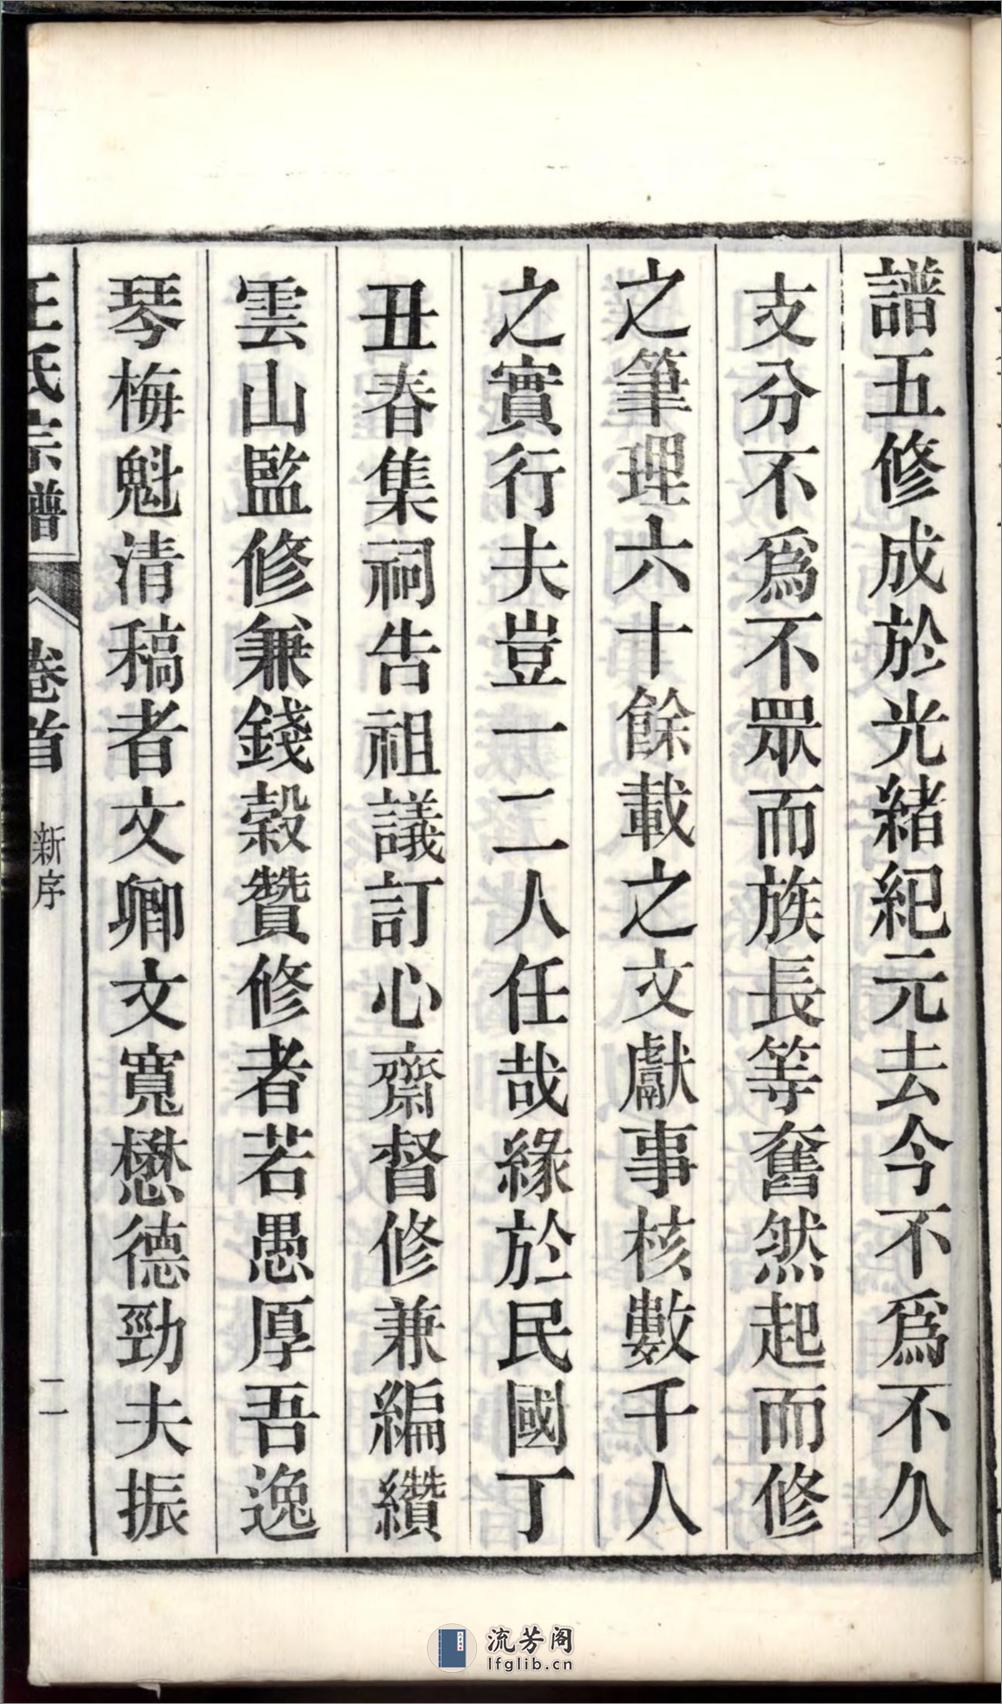 譜五修成於光緒紀元去今不爲不久
支分不爲不眾而族長等奮然起而修
之筆理六十餘載之文獻事核數千人
之實行夫豈一二人任哉緣於民國丁
丑春集祠告祖議訂心齋督修兼編纘
雲山監修兼錢穀贊修者若愚厚吾逸
琴梅魁清稿者文卿文寬懋德勁夫振
氏宗譜
卷首
新序
二
流芳阁
lfglib.cn